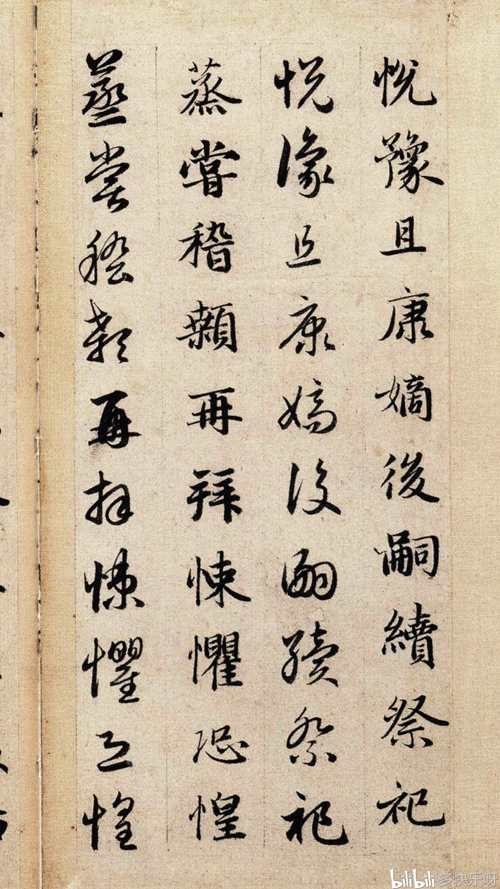 悅豫且康嫡後嗣續祭祀
悅豫且康嫡後嗣續祭祀
蒸嘗稽顙再拜悚懼恐惶
蒸嘗稽顙再拜悚懼恐惶
bilibili